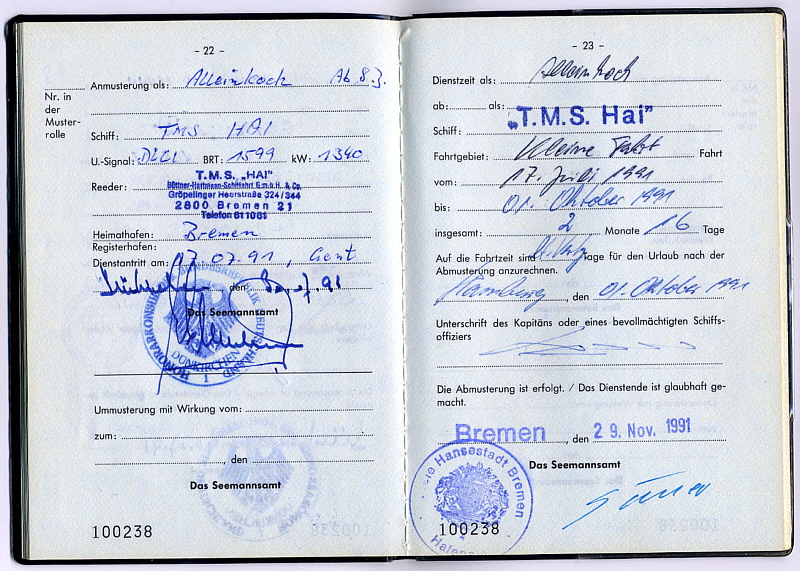 - 22 -
Anmusterung als: Alleinkoch Ab 8.3.
Nr. in
der
Muster-
rolle
Schiff: TMS HAI
U.-Signal: DLCI BRT: 1599 kW: 1340
T.M.S. „HAI"
Reeder: Büttner-Hartmann-Schiffahrt G.m.b.H. & Co.
Gröpelinger Heerstraße 324/344
2800 Bremen 21
Telefon 611061
Heimathafen: Bremen
Registerhafen:
Dienstantritt am: 17.07.91, Gent
, den
Das Seemannsamt
HONORARKONSUL BUNDESREPUBLIK DEUTSCHLAND
DÜNKIRCHEN
1
Ummusterung mit Wirkung vom:
zum:
, den
Das Seemannsamt
100238
- 23 -
Dienstzeit als: Alleinkoch
ab: als:
Schiff: „T.M.S. Hai"
Fahrtgebiet: Kleine Fahrt Fahrt
vom: 17. Juli 1991
bis: 01. Oktober 1991
insgesamt: 2 Monate 16 Tage
Auf die Fahrtzeit sind Tage für den Urlaub nach der
Abmusterung anzurechnen.
Hamburg, den 01. Oktober 1991
Unterschrift des Kapitäns oder eines bevollmächtigten Schiffs-
offiziers
Die Abmusterung ist erfolgt. / Das Dienstende ist glaubhaft ge-
macht.
Bremen, den 29. Nov. 1991
Das Seemannsamt
Freie Hansestadt Bremen
100238